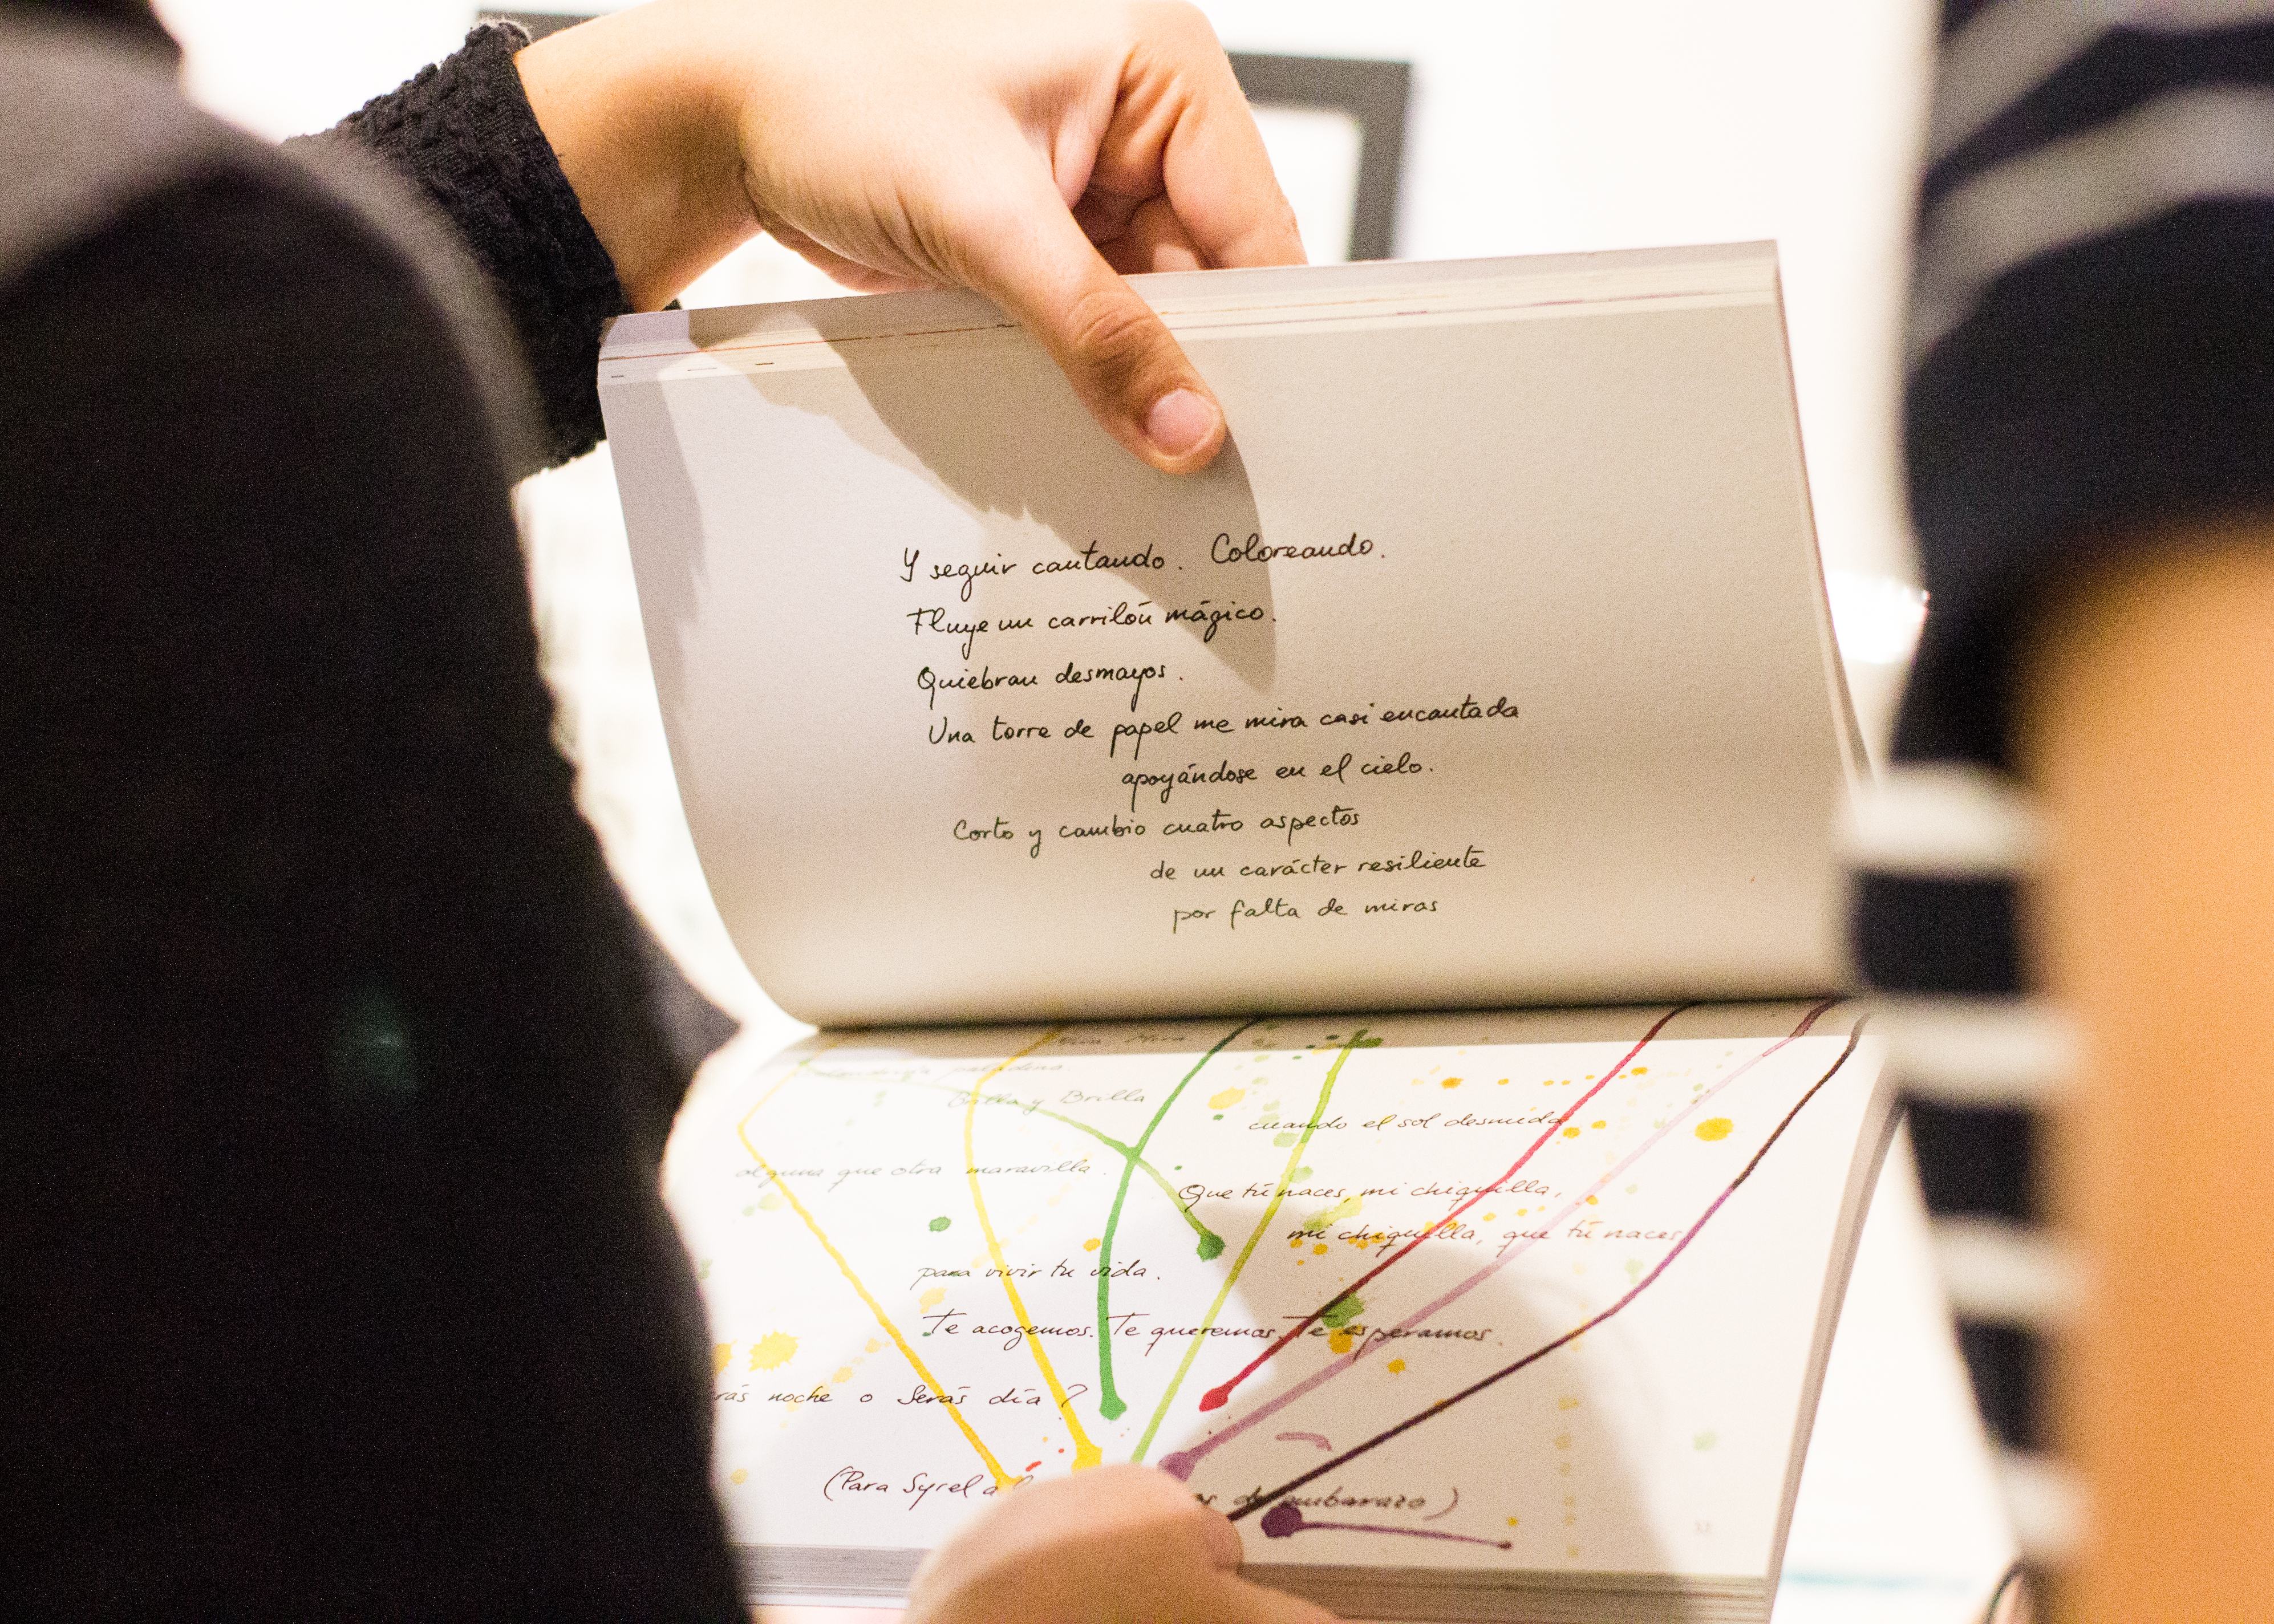 Y seguir cantando. Coloreando.
Fluye un carrilón mágico.
Quiebran desmayos.
Una torre de papel me mira casi encantada
apoyándose en el cielo.
Corto y cambio cuatro aspectos
de un carácter resiliente
por falta de miras
Brilla y Brilla
cuando el sol desnuda
alguna que otra maravilla.
Que tú naces, mi chiquilla,
mi chiquilla, que tú naces
para vivir tu vida.
Te acogemos. Te queremos. Te esperamos.
noche o Serás día?
(Para Syrel a
de embarazo)